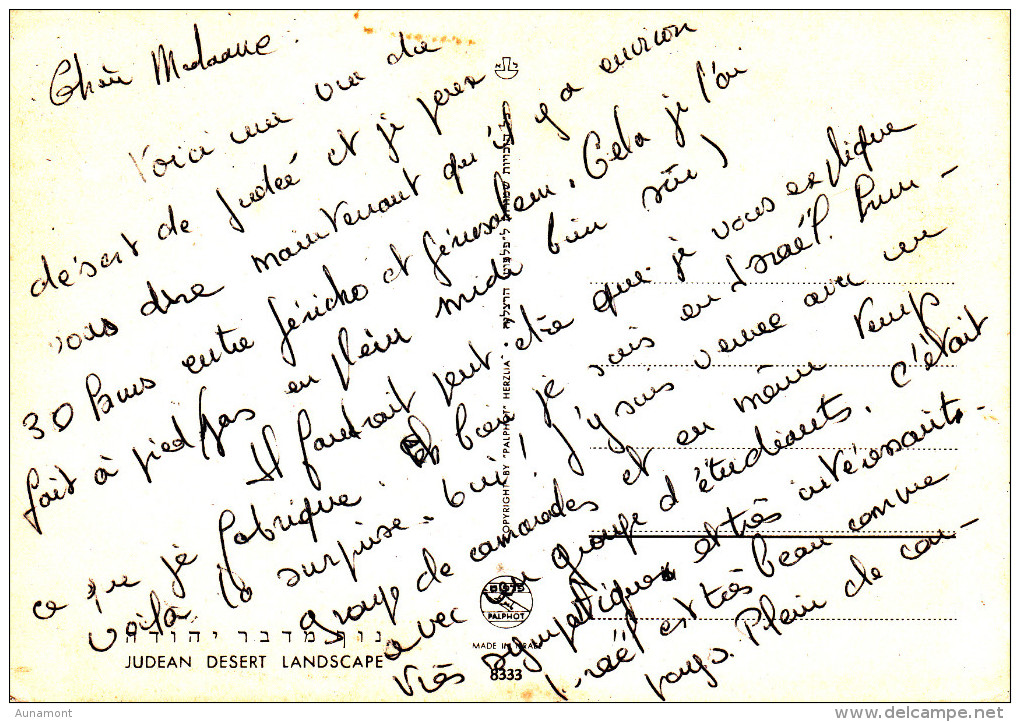 Chère Madame.
Voici une vue du
désert de Judée et je peux
vous dire maintenant qu'il y a environ
30 kms entre Jéricho et Jérusalem. Cela je l'ai
fait à pied (pas en plein midi bien sûr)
Il faudrait peut être que je vous explique
ce que je fabrique. Eh bien je suis en Israël. Hum-
voilà la surprise. Oui! J'y suis venue avec un
groupe de camarades et en même temps
avec un groupe d'étudiants, c'était
très sympathique et très intéressant.
Israël est très beau comme
pays. Plein de con-
COPYRIGHT BY "PALPHOT" HERZLIA
פלפוט
PALPHOT
MADE IN ISRAEL
8333
נוף מדבר יהודה
JUDEAN DESERT LANDSCAPE
Aunamont
delcampe.net